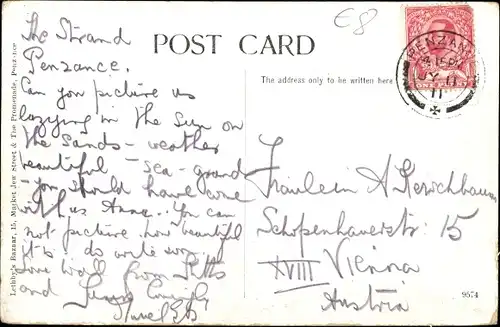 €8
The Strand
Penzance.
Can you picture us
lazying in the sun on
the sands - weather
beautiful - sea - grand
- you should have come
with us Anne... You can
not picture how beautiful
it is do write soon
Love to all from
and
POST CARD
The address only to be written here
PENZANCE
JY 11
11
ONE PENNY
Fräulein A Kerschbaum
Schopenhauerstr: 15
XVIII Vienna
Austria
9574
Lethby's Bazaar, 15, Market Jew Street & The Promenade, Penzance